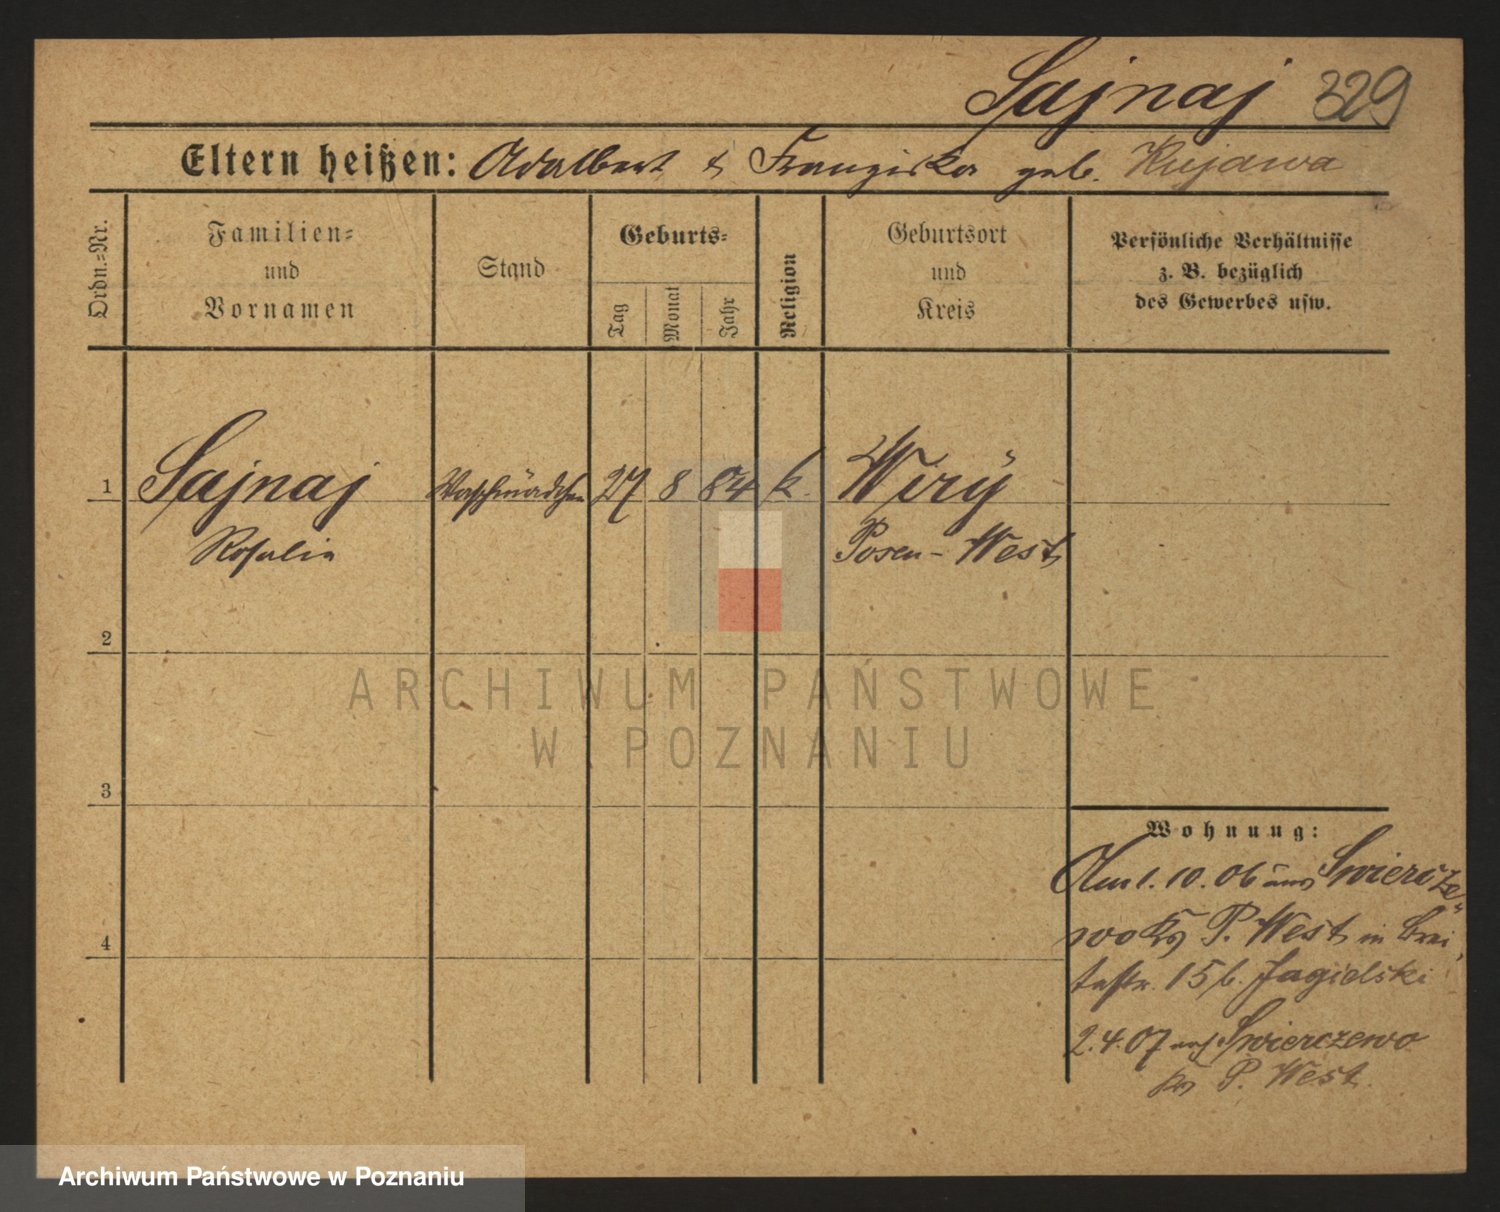 Sajnaj 329
Eltern heißen: Adalbert & Franziska geb. Kujawa
Ordn.-Nr.
Familien-
und
Vornamen
Stand
Geburts-
Tag
Monat
Jahr
Religion
Geburtsort
und
Kreis
Persönliche Verhältnisse
z. B. bezüglich
des Gewerbes usw.
1 Sajnaj Waschmädchen 27 8 84 k. Wiry
Rosalie Posen-West
2
ARCHIWUM PAŃSTWOWE
W POZNANIU
3
Wohnung:
Am 1.10.06 aus Swiercze-
4 wo Krs P. West in Brei
testr. 15 b. Jagielski
2.4.07 nach Swierczewo
Krs P. West.
Archiwum Państwowe w Poznaniu